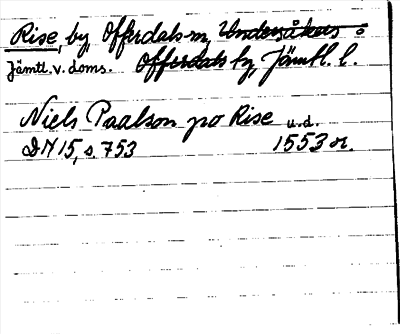 Rise, by, Offerdals sn, Undersåkers o
Jämtl. v. doms. Offerdals ty, Jämtl. l.
Niels Paalson po Rise u.d.
DN 15, s. 753 1553 or.